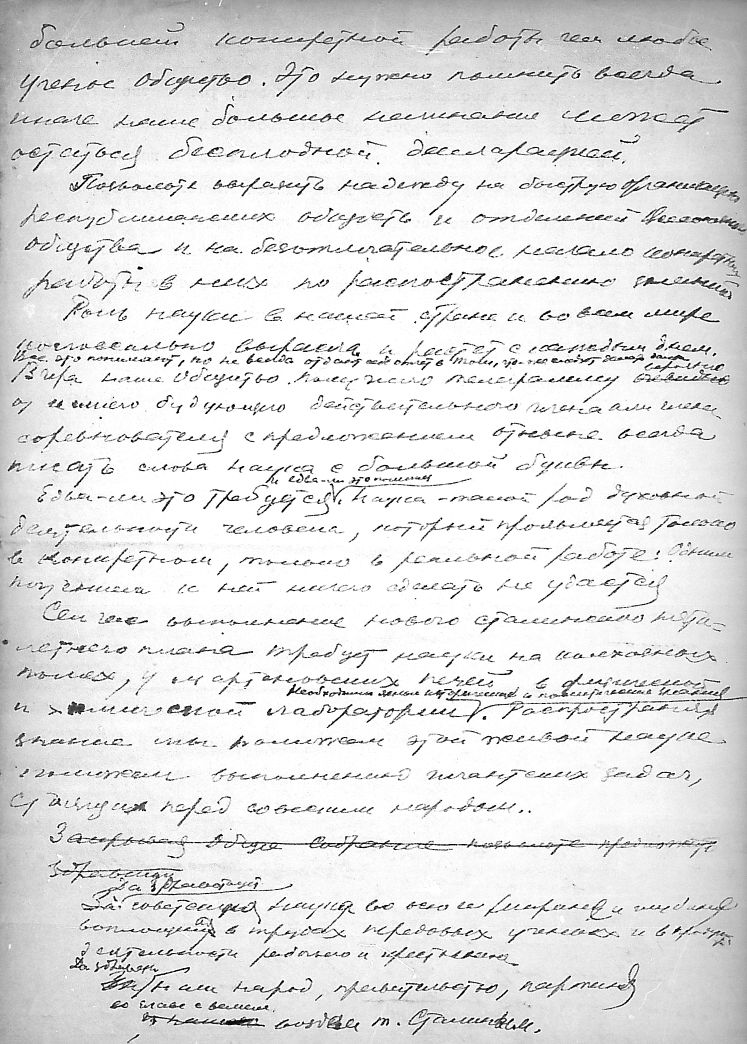 большей конкретной работы чем любое
ученое общество. Это нужно помнить всегда
иначе наше большое начинание может
остаться бесплодной декларацией.
Позвольте выразить надежду на быструю организацию
республиканских обществ и отделений Всесоюзного
общества и на безотлагательное начало конкретной
работы в них по распространению знаний
Роль науки в нашей стране и во всем мире
колоссально выросла и растет с каждым днем.
Все это понимают, но не всегда отдают себе отчет в том, что
Вчера наше Общество получило телеграмму
от одного будущего действительного члена или члена
соревнователя с предложением отныне всегда
писать слова наука с большой буквы.
и едва-ли это
Едва-ли это требуется. Наука - такой род духовной
деятельности человека, который проявляется только
в конкретном, только в реальной работе. Одним
почтением к ней ничего сделать не удастся
Сейчас выполнение нового сталинского пяти-
летнего плана требует науки на колхозных
полях, у мартеновских печей в физической
Необходимы знания исторические и политические знания
и химической лаборатории. Распространяя
знание мы поможем этой живой науке
поможем выполнению гигантских задач,
стоящих перед советским народом..
Закрывая Общее собрание позвольте провозгласить
здравицу
Да здравствует
За советскую науку во всей
воплощенная в трудах передовых ученых и в
деятельности рабочего и крестьянина
Да здравствует
За наш народ, правительство, партию
во главе с великим
вождем т. Сталиным.